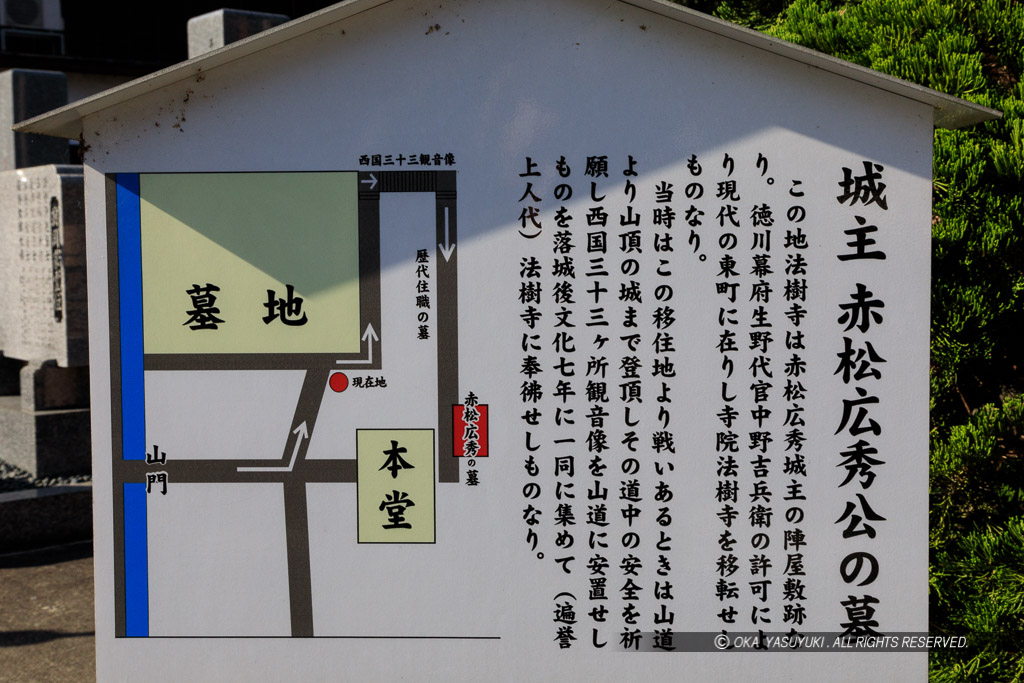 城主 赤松広秀公の墓
この地法樹寺は赤松広秀城主の陣屋敷跡な
り。徳川幕府生野代官中野吉兵衛の許可によ
り現代の東町に在りし寺院法樹寺を移転せし
ものなり。
当時はこの移住地より戦いあるときは山道
より山頂の城まで登頂しその道中の安全を祈
願し西国三十三ヶ所観音像を山道に安置せし
ものを落城後文化七年に一同に集めて（遍誉
上人代）法樹寺に奉彿せしものなり。
西国三十三観音像
歴代住職の墓
墓地
現在地
赤松広秀の墓
本堂
山門
© OKA YASUYUKI . ALL RIGHTS RESERVED.